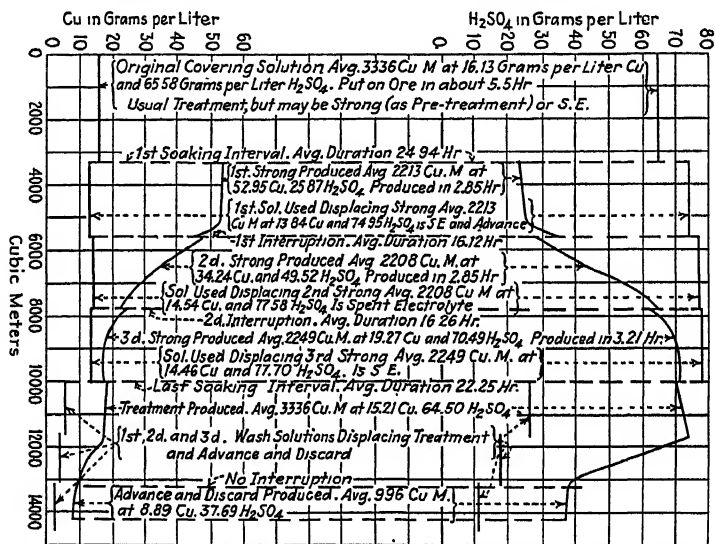 Cu in Grams per Liter H₂SO₄ in Grams per Liter
0 10 20 30 40 50 60 0 10 20 30 40 50 60 70 80
Cubic Meters
0
2000
4000
6000
8000
10000
12000
14000
Original Covering Solution Avg. 3336 Cu M at 16.13 Grams per Liter Cu
and 65 58 Grams per Liter H₂SO₄. Put on Ore in about 5.5 Hr
Usual Treatment, but may be Strong (as Pre-treatment) or S.E.
1st Soaking Interval. Avg. Duration 24 94 Hr
1st. Strong Produced Avg 2213 Cu. M at
52.95 Cu, 25 87 H₂SO₄ Produced in 2.85 Hr
1st. Sol. Used Displacing Strong Avg. 2213
Cu M at 13 84 Cu and 74 95 H₂SO₄ is S E and Advance
1st Interruption. Avg. Duration 16.12 Hr
2d. Strong Produced Avg 2208 Cu. M. at
34.24 Cu. and 49.52 H₂SO₄ Produced in 2.85 Hr
Sol Used Displacing 2nd Strong Avg. 2208 Cu M at
14.54 Cu, and 77.58 H₂SO₄ Is Spent Electrolyte
2d. Interruption. Avg. Duration 16 26 Hr.
3d. Strong Produced Avg. 2249 Cu. M at 19.27 Cu and 70.49 H₂SO₄ Produced in 3.21 Hr.
Sol. Used Displacing 3rd Strong Avg. 2249 Cu. M. at
14.46 Cu and 77.70 H₂SO₄. Is S E.
Last Soaking Interval. Avg. Duration 22.25 Hr.
Treatment Produced. Avg. 3336 Cu. M. at 15.21 Cu. 64.50 H₂SO₄
1st, 2d. and 3d. Wash Solutions Displacing Treatment
and Advance and Discard
No Interruption
Advance and Discard Produced. Avg. 996 Cu M.
at 8.89 Cu. 37.69 H₂SO₄